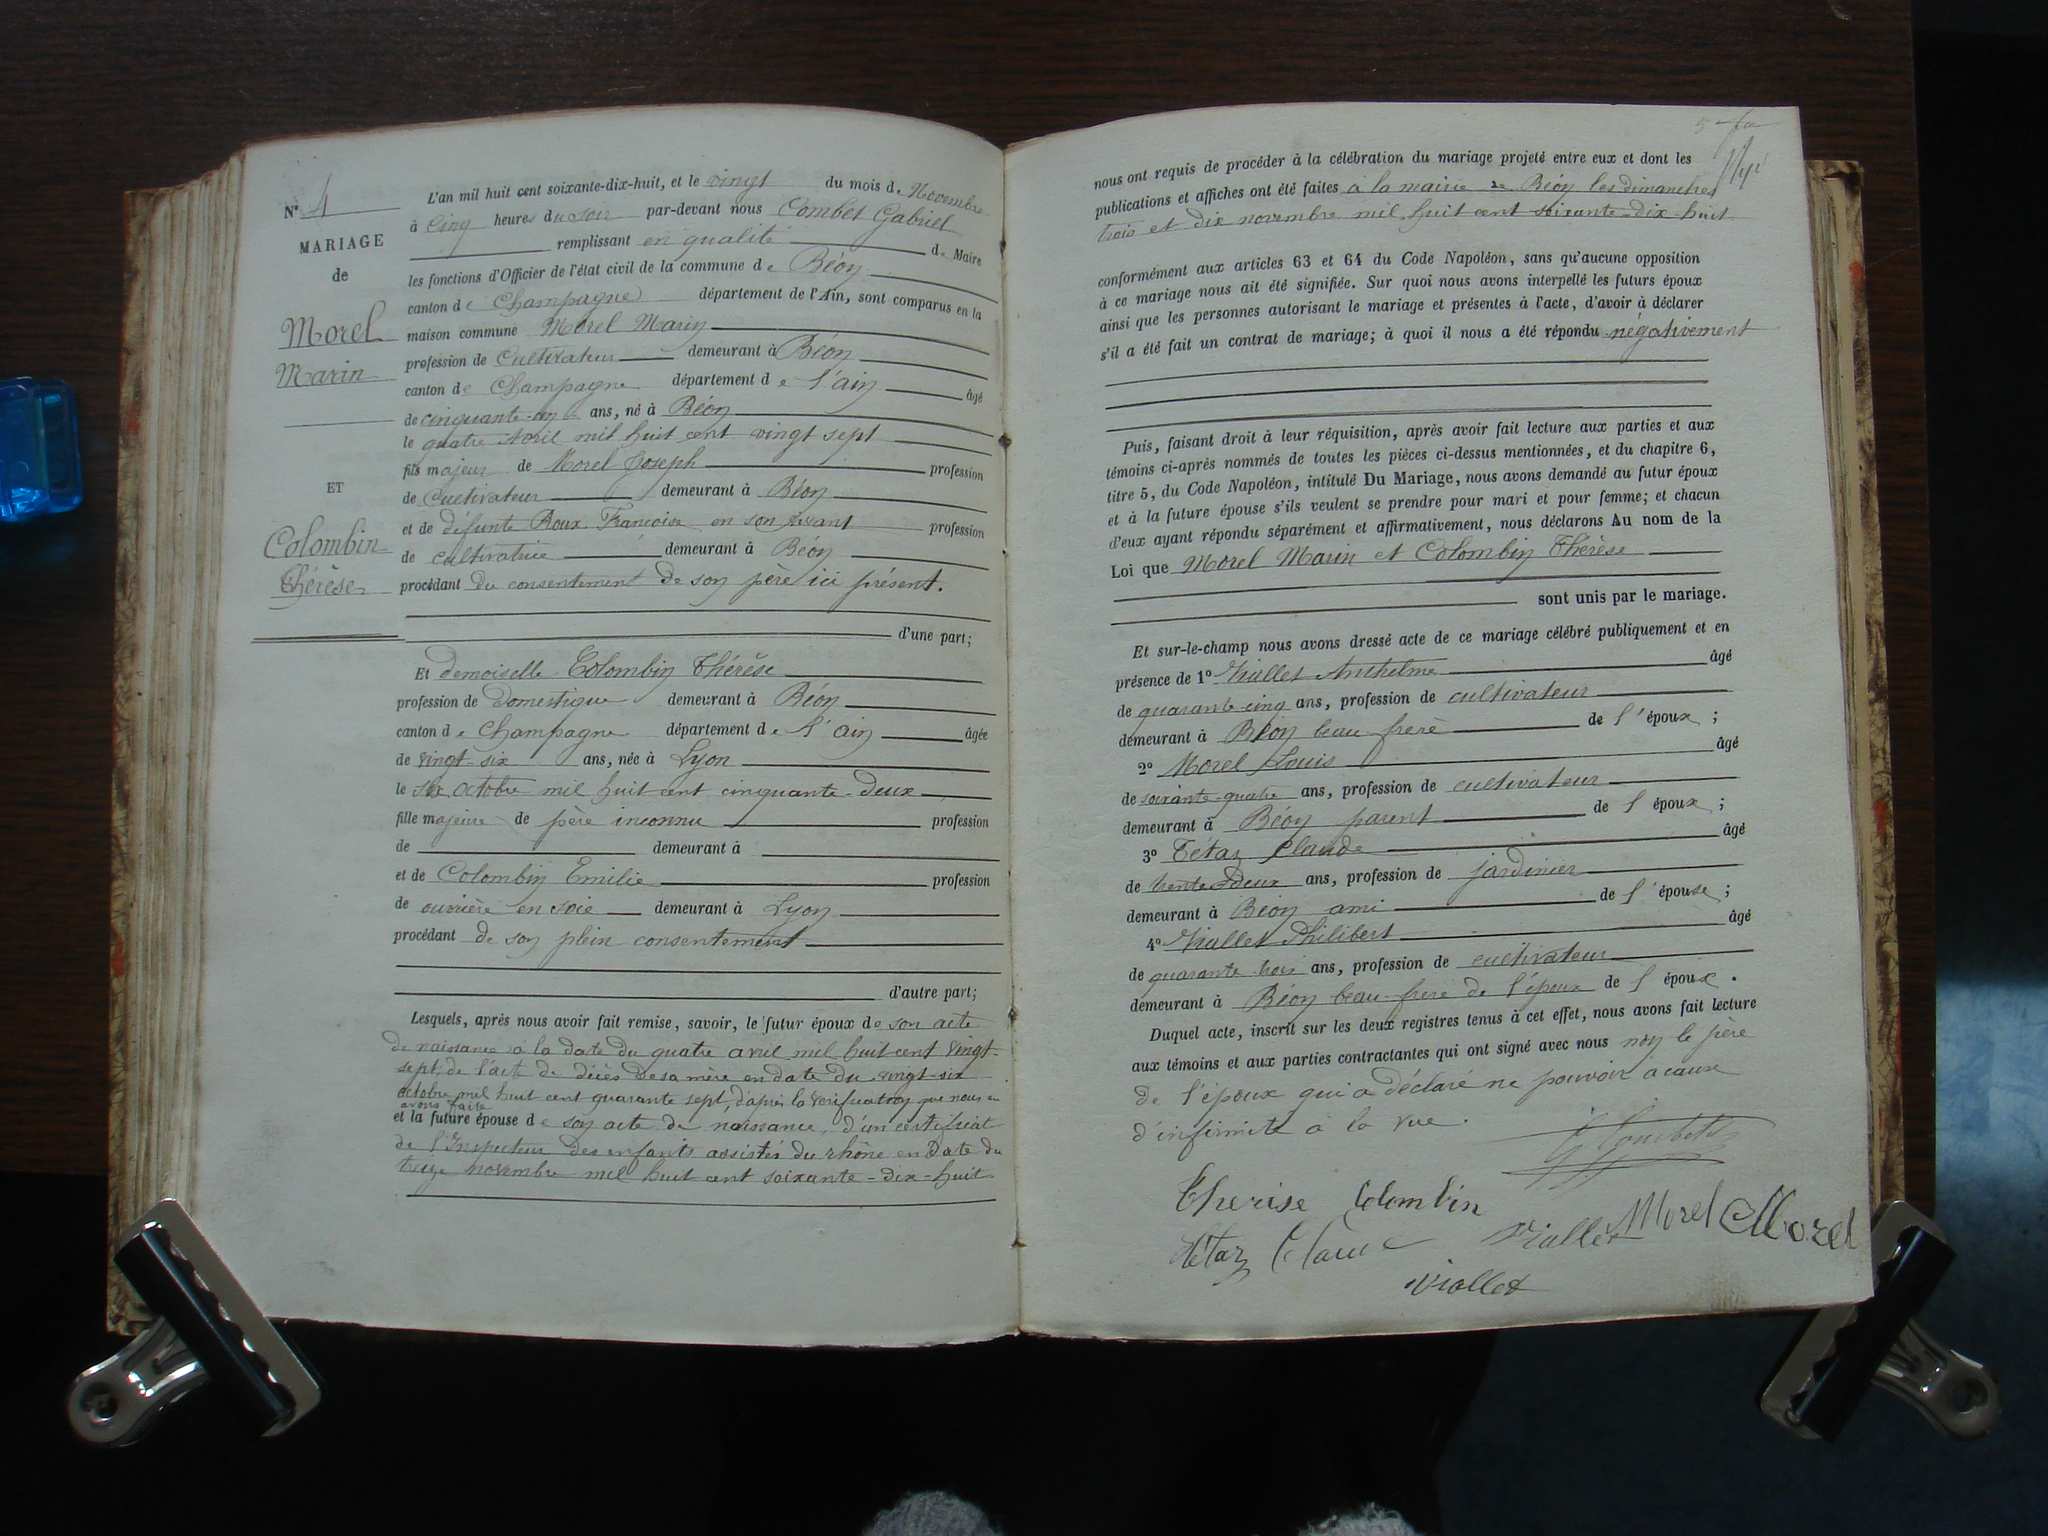 N° 4
MARIAGE
de
Morel
Marin
ET
Colombin
Thérèse
L'an mil huit cent soixante-dix-huit, et le vingt du mois de Novembre
à Cinq heures du soir par-devant nous Combet Gabriel
remplissant en qualité de Maire
les fonctions d'Officier de l'état civil de la commune de Béon
canton de Champagne département de l'Ain, sont comparus en la
maison commune Morel Marin
profession de Cultivateur demeurant à Béon
canton de Champagne département de l'ain âgé
de cinquante-un ans, né à Béon
le quatre Avril mil huit cent vingt sept
fils majeur de Morel Joseph profession
de Cultivateur demeurant à Béon
et de défunte Roux Françoise en son vivant profession
de cultivatrice demeurant à Béon
procédant du consentement de son père ici présent.
d'une part;
Et demoiselle Colombin Thérèse
profession de Domestique demeurant à Béon
canton de Champagne département de l'ain âgée
de vingt-six ans, née à Lyon
le six octobre mil huit cent cinquante-deux
fille majeure de père inconnu profession
de demeurant à
et de Colombin Emilie profession
de ouvrière en soie demeurant à Lyon
procédant de son plein consentement
d'autre part;
Lesquels, après nous avoir fait remise, savoir, le futur époux de son acte
de naissance à la date du quatre avril mil huit cent vingt-
sept, de l'acte de décès de sa mère en date du vingt-six
octobre mil huit cent quarante sept, d'après la vérification que nous en
avons faite
et la future épouse de son acte de naissance, d'un certificat
de l'Inspecteur des enfants assistés du rhône en date du
treize novembre mil huit cent soixante-dix-huit
nous ont requis de procéder à la célébration du mariage projeté entre eux et dont les
publications et affiches ont été faites à la mairie de Béon les dimanches
trois et dix novembre mil huit cent soixante-dix-huit
conformément aux articles 63 et 64 du Code Napoléon, sans qu'aucune opposition
à ce mariage nous ait été signifiée. Sur quoi nous avons interpellé les futurs époux
ainsi que les personnes autorisant le mariage et présentes à l'acte, d'avoir à déclarer
s'il a été fait un contrat de mariage; à quoi il nous a été répondu négativement
Puis, faisant droit à leur réquisition, après avoir fait lecture aux parties et aux
témoins ci-après nommés de toutes les pièces ci-dessus mentionnées, et du chapitre 6,
titre 5, du Code Napoléon, intitulé Du Mariage, nous avons demandé au futur époux
et à la future épouse s'ils veulent se prendre pour mari et pour femme; et chacun
d'eux ayant répondu séparément et affirmativement, nous déclarons Au nom de la
Loi que Morel Marin et Colombin Thérèse
sont unis par le mariage.
Et sur-le-champ nous avons dressé acte de ce mariage célébré publiquement et en
présence de 1° Viallet Anthelme âgé
de quarante cinq ans, profession de cultivateur
demeurant à Béon beau-frère de l'époux;
2° Morel Louis âgé
de soixante-quatre ans, profession de cultivateur
demeurant à Béon parent de l'époux;
3° Tétaz Claude âgé
de trente-Deux ans, profession de jardinier
demeurant à Béon ami de l'épouse;
4° Viallet Philibert âgé
de quarante trois ans, profession de cultivateur
demeurant à Béon beau-frère de l'époux de l'époux.
Duquel acte, inscrit sur les deux registres tenus à cet effet, nous avons fait lecture
aux témoins et aux parties contractantes qui ont signé avec nous non le père
de l'époux qui a déclaré ne pouvoir a cause
d'infirmité à la vue.
G Combet
Therise Colombin
Tétaz Claude Viallet Morel Morel
Viallet